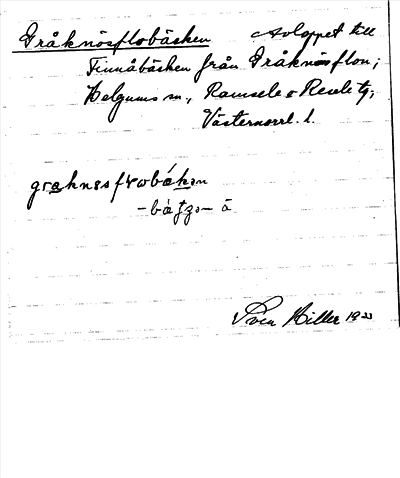 Gråknösflobäcken Avloppet till
Finnåbäcken från Gråknösflon;
Helgums sn, Ramsele o Resele tg;
Västernorrl. l.
graknøsflobäkən
Sven Hiller 19